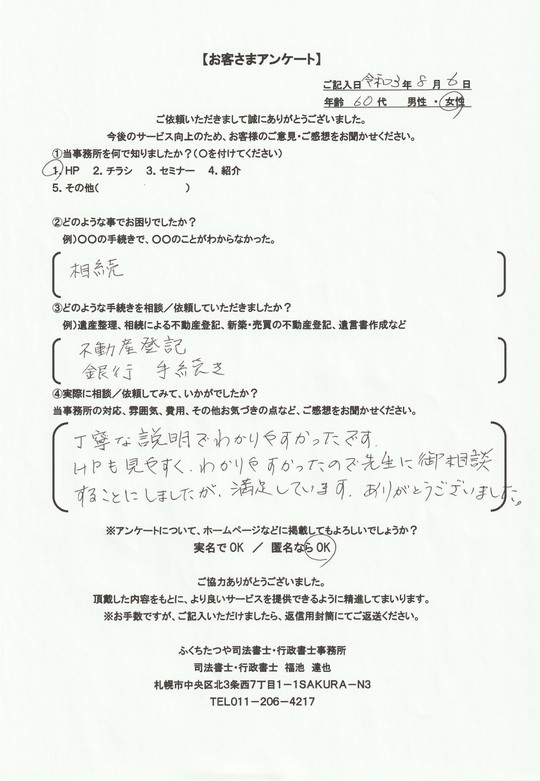 【お客さまアンケート】
ご記入日 令和3年 8月 6日
年齢 60代 男性・女性
ご依頼いただきまして誠にありがとうございました。
今後のサービス向上のため、お客様のご意見・ご感想をお聞かせください。
①当事務所を何で知りましたか？(〇を付けてください)
1. HP 2. チラシ 3. セミナー 4. 紹介
5. その他( )
②どのような事でお困りでしたか？
例)〇〇の手続きで、〇〇のことがわからなかった。
相続
③どのような手続きを相談／依頼していただきましたか？
例)遺産整理、相続による不動産登記、新築・売買の不動産登記、遺言書作成など
不動産登記
銀行 手続き
④実際に相談／依頼してみて、いかがでしたか？
当事務所の対応、雰囲気、費用、その他お気づきの点など、ご感想をお聞かせください。
丁寧な説明でわかりやすかったです.
HPも見やすく.わかりやすかったので先生に御相談
することにしましたが.満足しています.ありがとうございました。
※アンケートについて、ホームページなどに掲載してもよろしいでしょうか？
実名でOK ／ 匿名ならOK
ご協力ありがとうございました。
頂戴した内容をもとに、より良いサービスを提供できるように精進してまいります。
※お手数ですが、ご記入いただけましたら、返信用封筒にてご返送ください。
ふくちたつや司法書士・行政書士事務所
司法書士・行政書士 福池 達也
札幌市中央区北3条西7丁目1－1SAKURA－N3
TEL011-206-4217